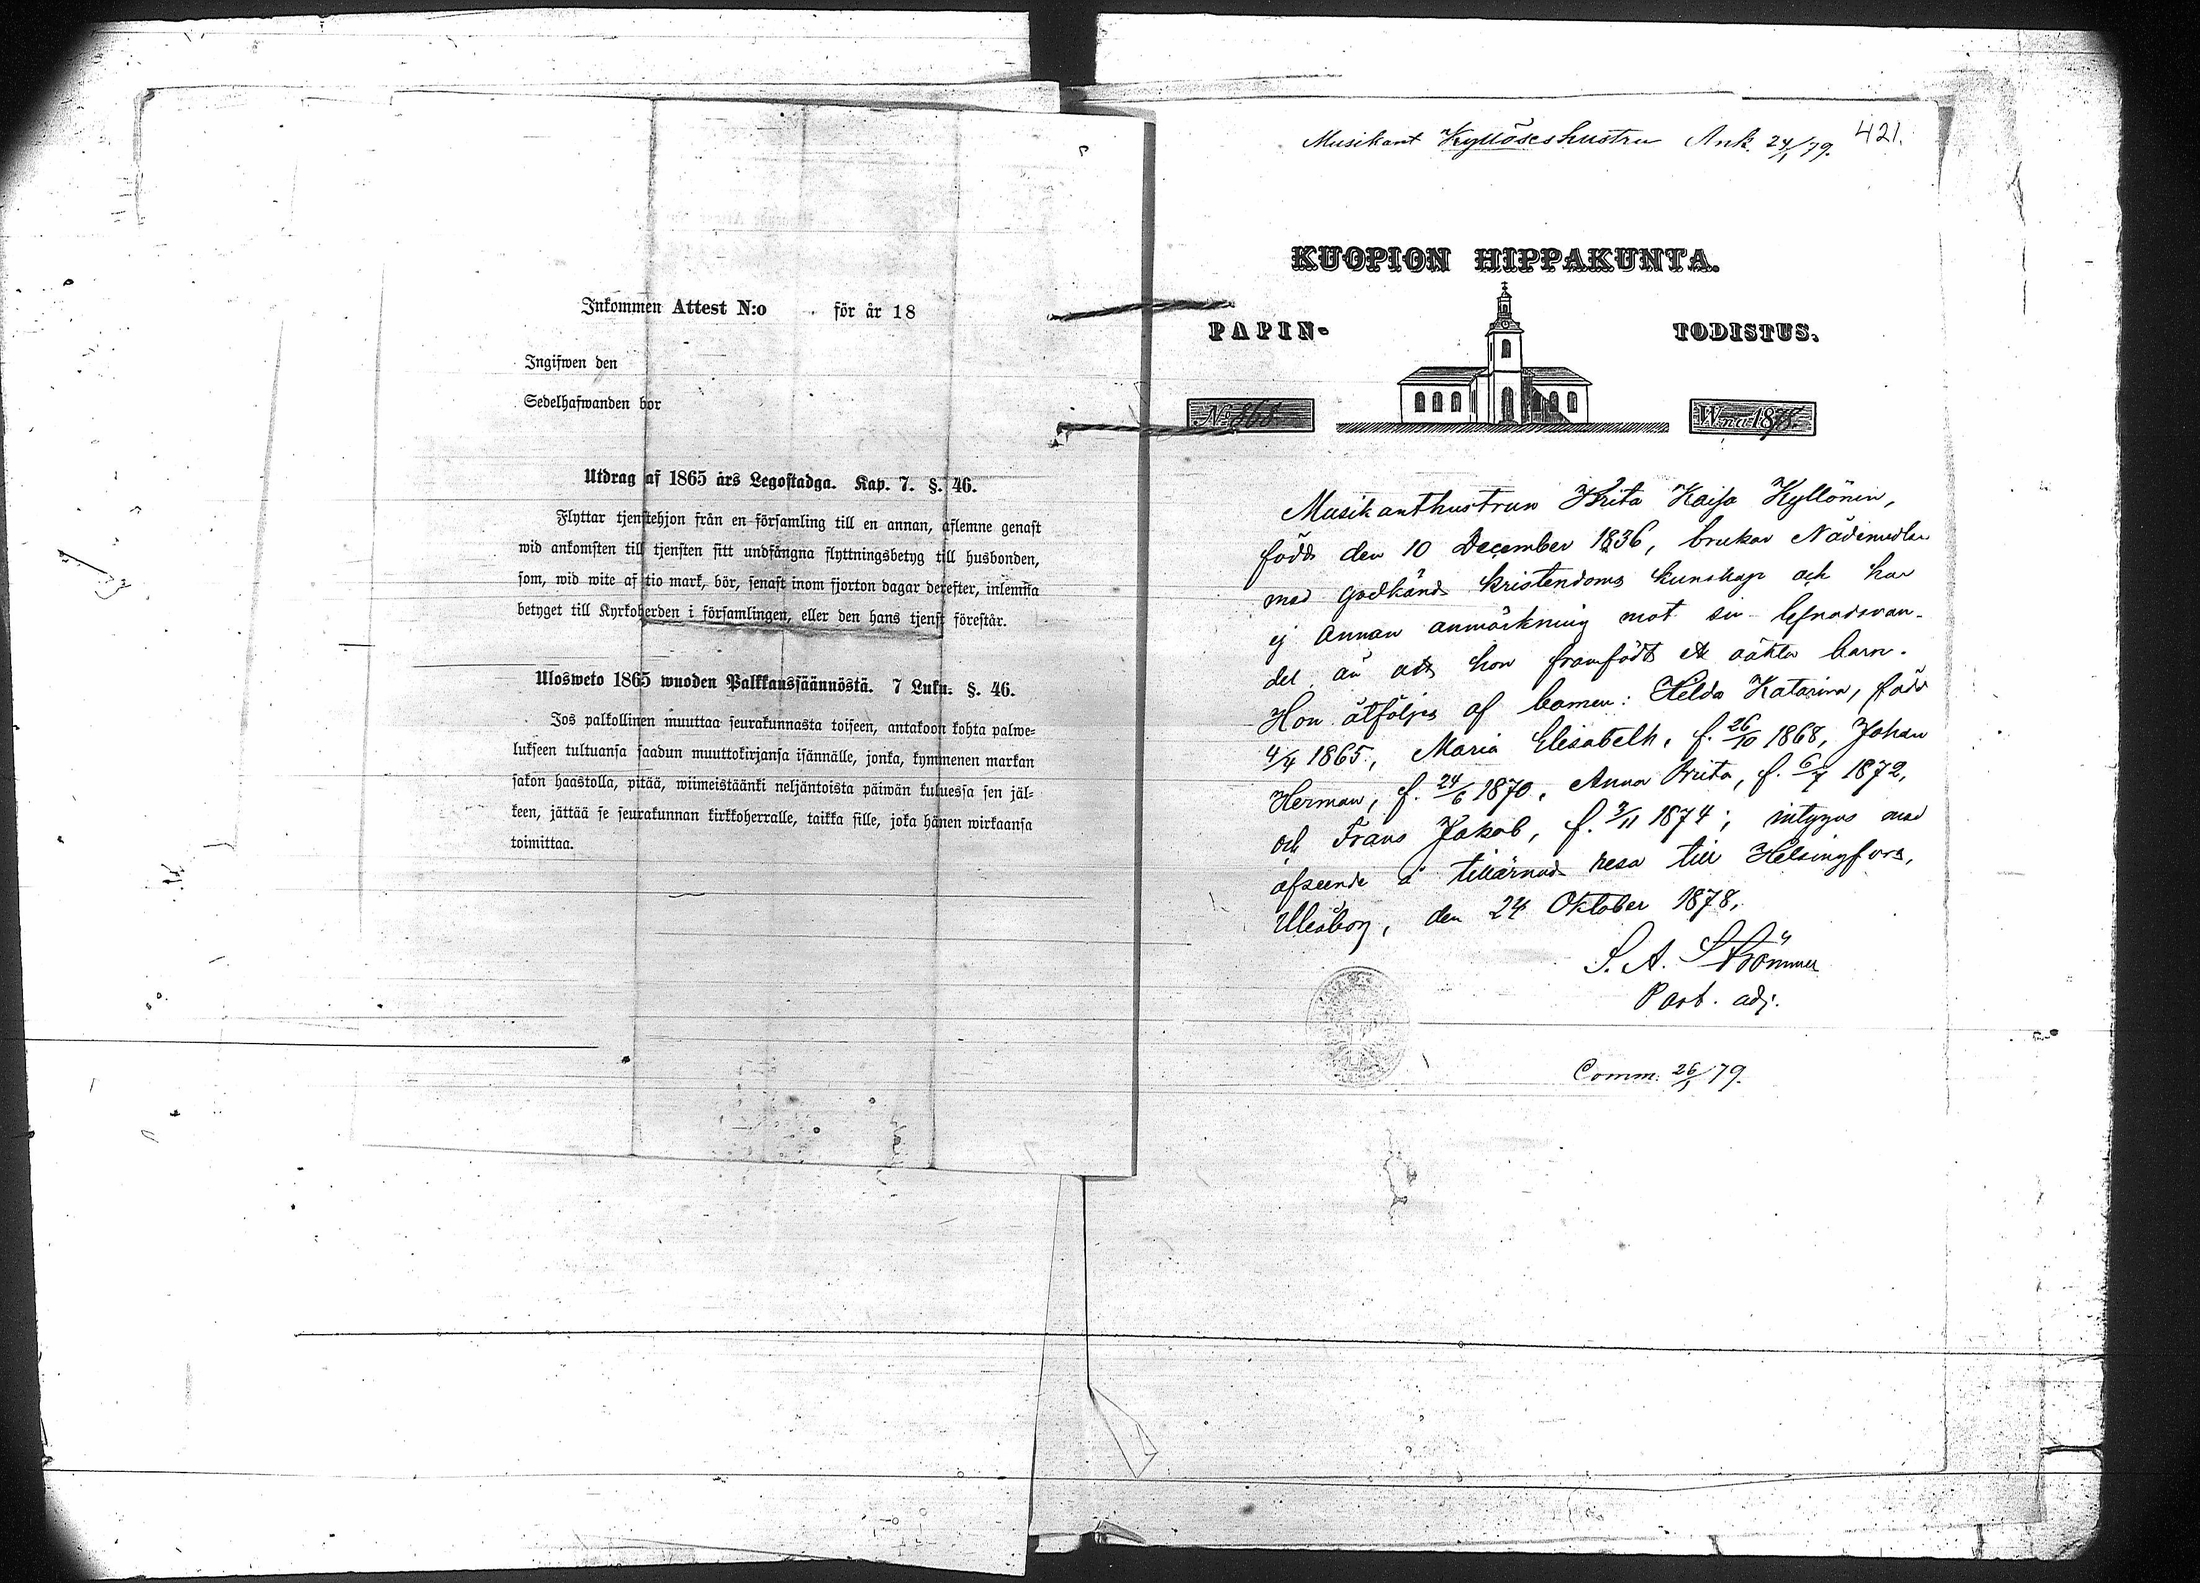 Inkommen Attest N:o för år 18
Ingifwen den
Sedelhafwanden bor
Utdrag af 1865 års Legostadga. Kap. 7. §. 46.
Flyttar tjenstehjon från en församling till en annan, aflemne genast
wid ankomsten till tjensten sitt undfångna flyttningsbetyg till husbonden,
som, wid wite af tio mark, bör, senast inom fjorton dagar derefter, inlemna
betyget till Kyrkoherden i församlingen, eller den hans tjenst förestår.
Ulosweto 1865 wuoden Palkkaussäännöstä. 7 Luku. §. 46.
Jos palkollinen muuttaa seurakunnasta toiseen, antakoon kohta palwe-
lukseen tultuansa saadun muuttokirjansa isännälle, jonka, kymmenen markan
sakon haastolla, pitää, wiimeistäänki neljäntoista päiwän kuluessa sen jäl-
keen, jättää se seurakunnan kirkkoherralle, taikka sille, joka hänen wirkaansa
toimittaa.
Musikant Kyllöses hustru Ank. 24/1 79. 421.
KUOPION HIPPAKUNTA.
PAPIN- TODISTUS.
No 868 Wna 1878.
Musikanthustrun Brita Kaisa Kyllönen,
född den 10 December 1836, brukar Nådemedlen
med godkänd kristendoms kunskap och har
ej annan anmärkning mot sin lefnadsvan-
del än att hon framfödt et oäkta barn.
Hon åtföljes af barnen: Helda Katarina, född
4/4 1865, Maria Elisabeth, f. 26/10 1868, Johan
Herman, f. 24/6 1870, Anna Brita, f. 6/7 1872,
och Frans Jakob, f. 3/11 1874; intygas med
afseende å tillärnad resa till Helsingfors,
Uleåborg, den 24 Oktober 1878.
S. A. Strömmer
Past. adj.
Comm. 26/1 79.